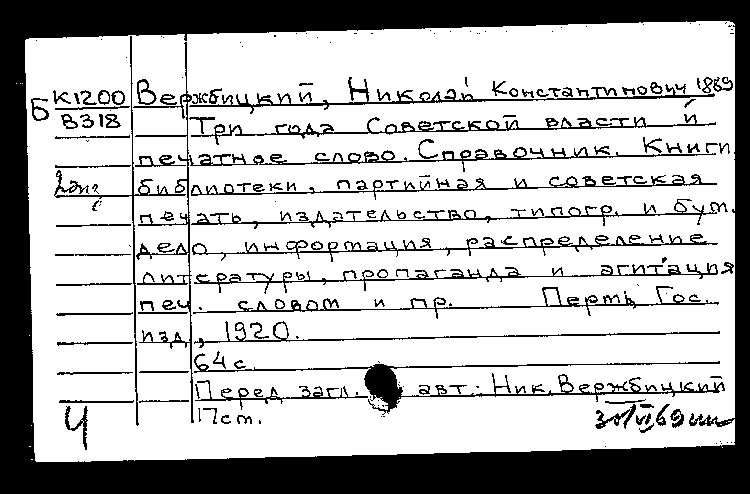 Б К1200 Вержбицкий, Николай Константинович 1889
В318 Три года Советской власти и
печатное слово. Справочник. Книги
2экз библиотеки, партийная и советская
печать, издательство, типогр. и бум.
дело, информация, распределение
литературы, пропаганда и агитация
печ. словом и пр. Пермь, Гос.
изд., 1920.
64 с.
Перед загл. авт.: Ник. Вержбицкий
Ч 17см.